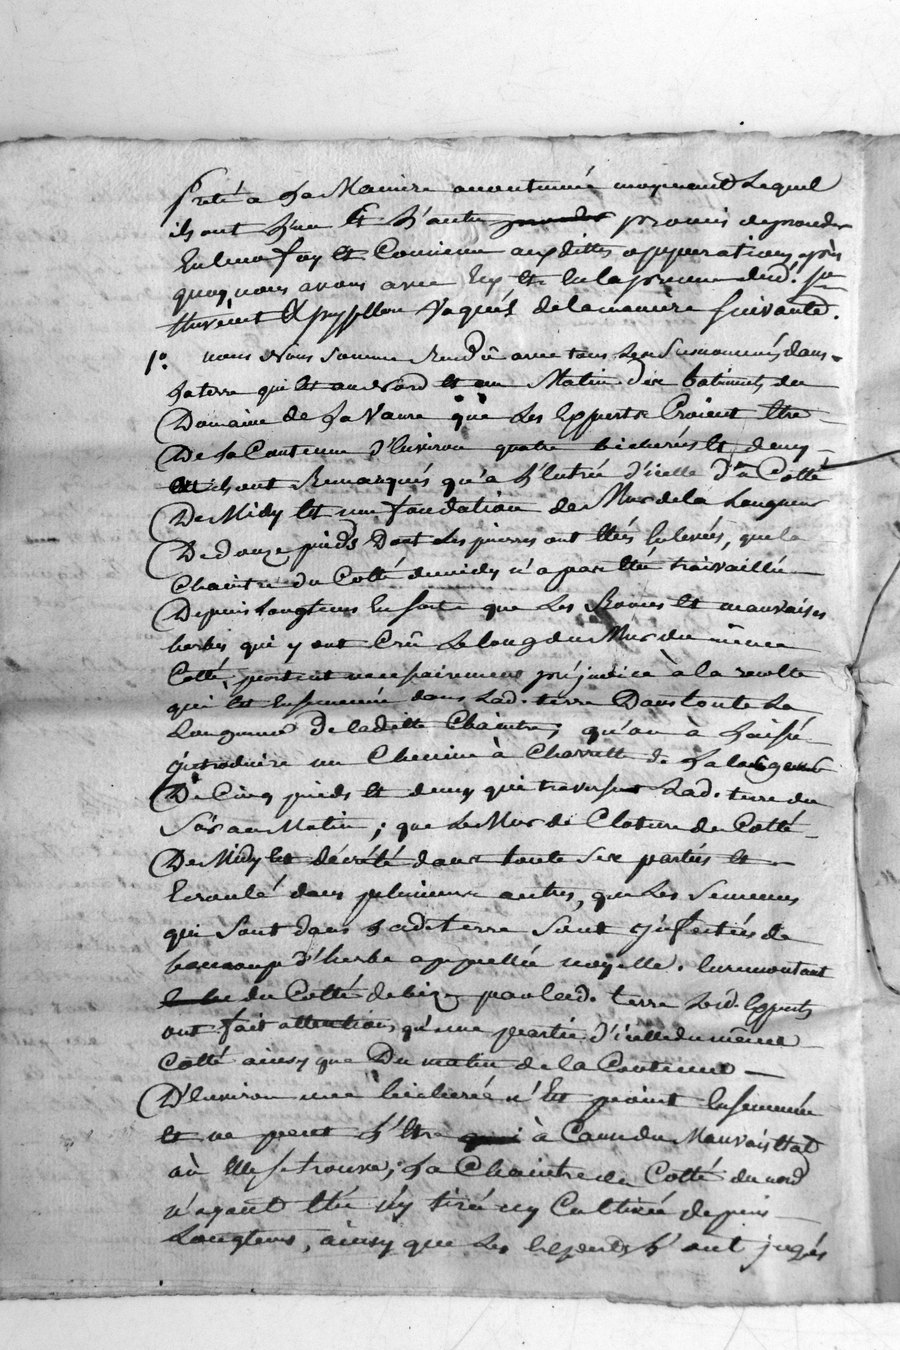 Preté a La Maniere accoutumée moyenant Lequel
ils ont L'un Et L'autre promis de proceder
En leur foy Et Conscience auxdittes opperations, après
quoy nous avons avec Eux, Et En la presence dud. Sr
de la maniere Suivante.
1°. nous Nous Somme Rendû avec tous Les Susnommés dans
La terre qui Est au Nord Et au Matin Des batiments du
Domaine de La Vaure que Les Experts Croient Etre
De La Contenue d'Environ quatre bicherées Et demy
ils ont Remarqués qu'a L'Entrée d'icelle Du Cotté
De Midy Est une fondation de Mur de la Longueur
De douze pieds Dont Les pierres ont Etés Enlevées, que la
Chaintre du Cotté de midy n'a pas Eté travaillée
Depuis Longtems En forte que Les Ronces Et mauvaises
herbes qui y ont Crû Le long du Mur du même
Cotté portent necessairement préjudice à la recolte
qui Est Ensemencée dans Lad. terre Dans toute La
Longueur De laditte Chaintre; qu'on à Laissé
introduire un Chemin à Charrette de La largeur
De Cinq pieds Et demy qui traverse Lad. terre du
Soir au Matin; que Le Mur de Cloture du Cotté
De Midy Est décrété dans toute Ses parties Et
Ecroulé dans plusieurs autres, que Les Semences
qui Sont dans Ladte terre Sont infectées de
beaucoup d'herbe appellée noyelle. En remontant
du Cotté de bize par Lad. terre Lesd. Experts
ont fait attention qu'une partie d'icelle du même
Cotté ainsy que Du matin de la Contenue
D'Environ une bicherée n'Est point Ensemencée
Et ne peut L'Etre à Cause du Mauvais Etat
où Elle Se trouve; La Chaintre du Cotté du nord
n'ayant Eté ny tirée ny Cultivée depuis
Longtems, ainsy que Les Experts L'ont jugés